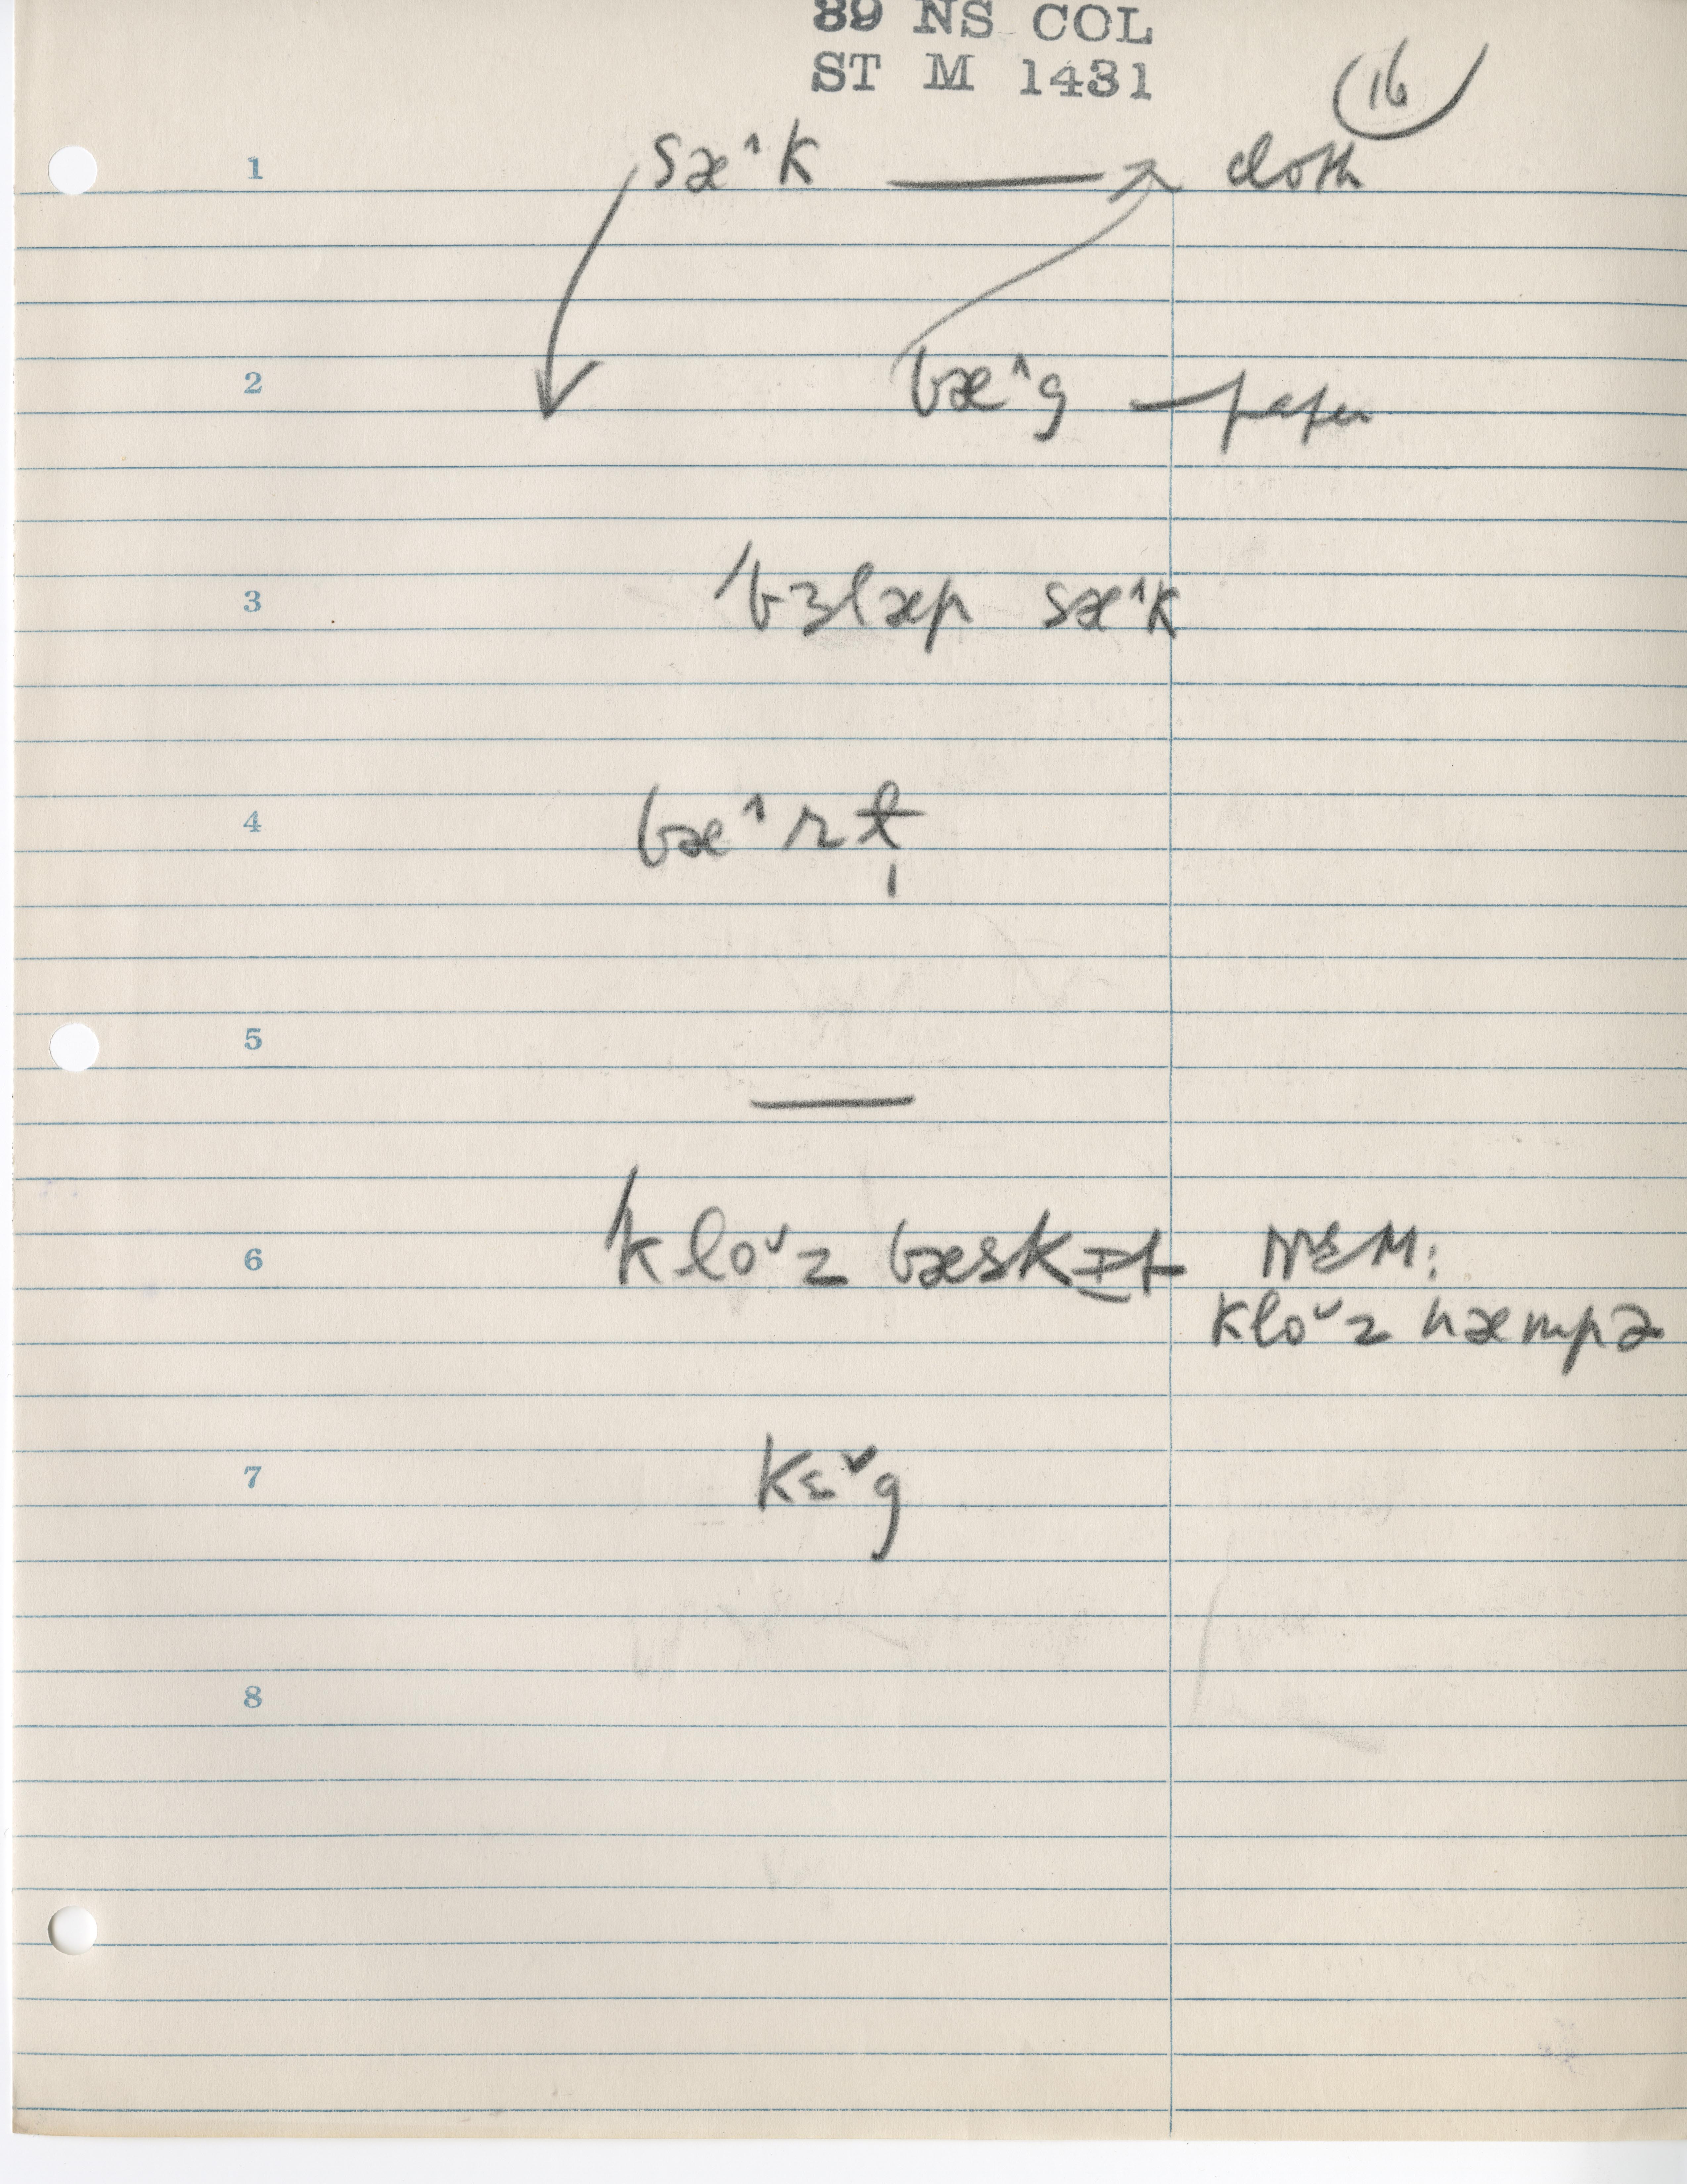 89 NS COL
ST M 1431
16
1 sæ^k → cloth
2 bæ^g — paper
3 'bɜlæp sæ^k
4 bæ^rɫ̩
5 —
6 'klo˅z bæskɪt NSM:
klo˅z hæmpə
7 kɛ˅g
8